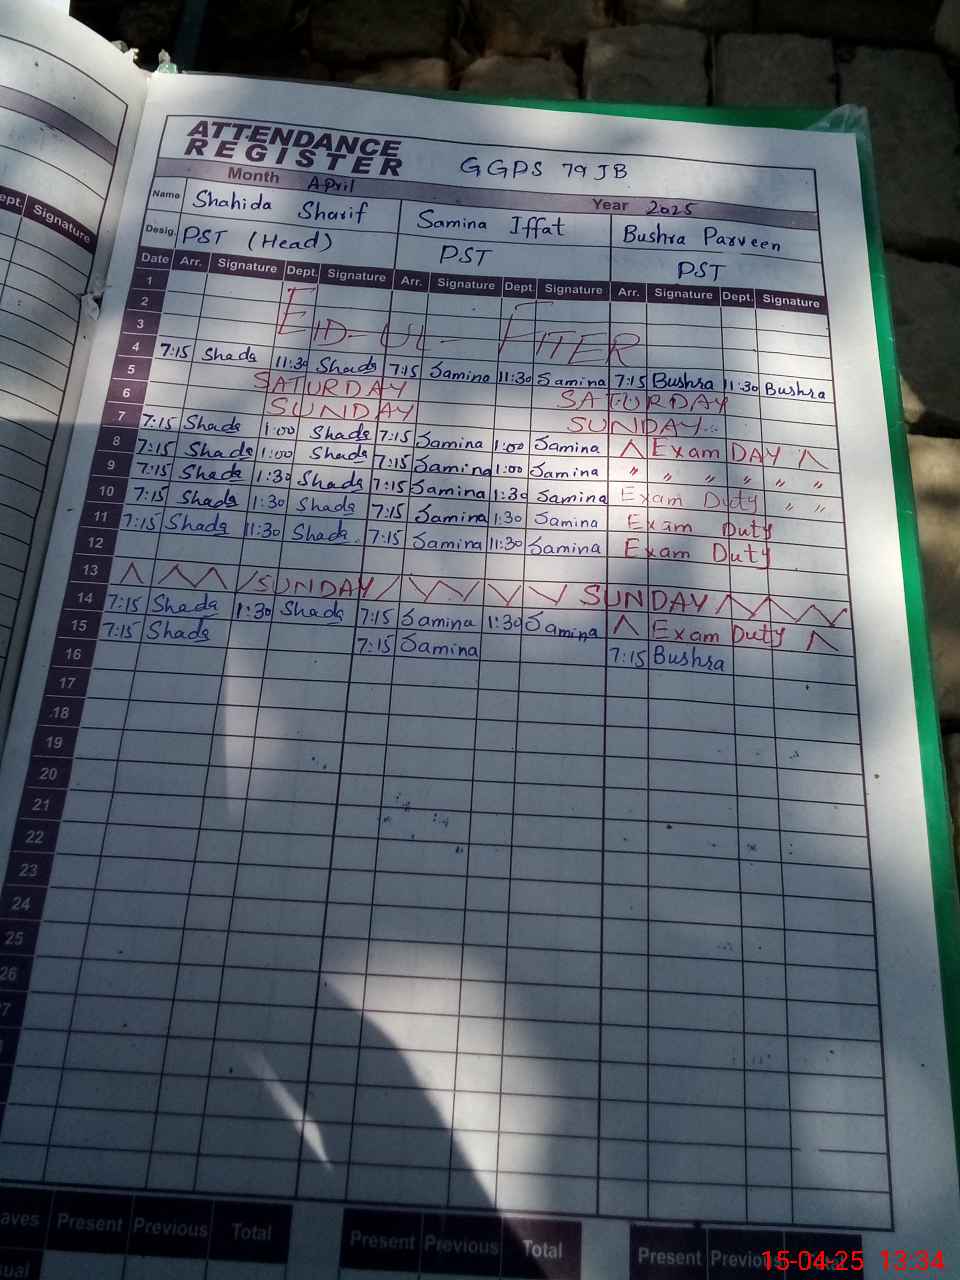 ATTENDANCE
REGISTER
GGPS 79 JB
Month April Year 2025
Name Shahida Sharif Samina Iffat Bushra Parveen
Desig. PST (Head) PST PST
Dept. Signature
Date Arr. Signature Dept. Signature Arr. Signature Dept. Signature Arr. Signature Dept. Signature
1
2
3 EID-UL-FITER
4 7:15 Shada 11:30 Shada 7:15 Samina 11:30 Samina 7:15 Bushra 11:30 Bushra
5 SATURDAY SATURDAY
6 SUNDAY SUNDAY
7 7:15 Shada 1:00 Shada 7:15 Samina 1:00 Samina Exam DAY
8 7:15 Shada 1:00 Shada 7:15 Samina 1:00 Samina " " " " " "
9 7:15 Shada 1:30 Shada 7:15 Samina 1:30 Samina Exam Duty " "
10 7:15 Shada 1:30 Shada 7:15 Samina 1:30 Samina Exam Duty
11 7:15 Shada 11:30 Shada. 7:15 Samina 11:30 Samina Exam Duty
12
13 SUNDAY SUNDAY
14 7:15 Shada 1:30 Shada 7:15 Samina 1:30 Samina Exam Duty
15 7:15 Shada 7:15 Samina 7:15 Bushra
16
17
18
19
20
21
22
23
24
25
26
Present Previous Total Present Previous Total Present
15-04-25 13:34